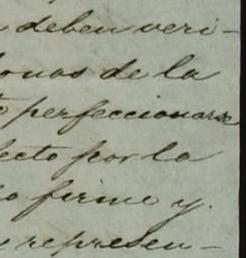 deben veri-
onas de la
perfeccionarse
fecto por la
firme y
represen-